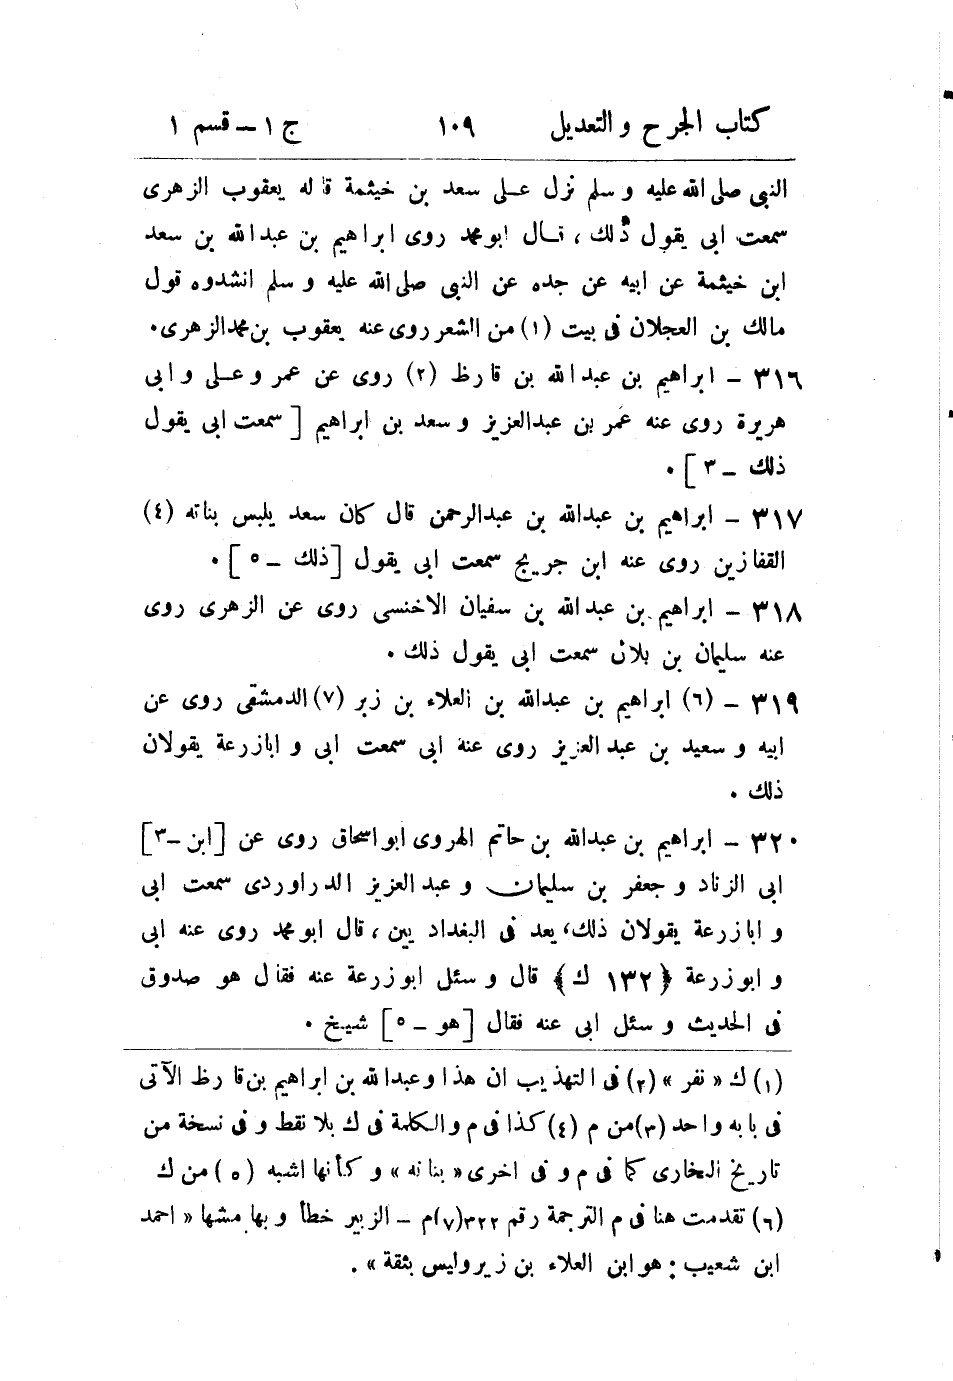 كتاب الجرح والتعديل ١٠٩ ج ١ – قسم ١
النبى صلى الله عليه وسلم نزل على سعد بن خيثمة قاله يعقوب الزهرى
سمعت ابى يقول ذلك، قال ابو محمد روى ابراهيم بن عبدالله بن سعد
ابن خيثمة عن ابيه عن جده عن النبى صلى الله عليه وسلم انشدوه قول
مالك بن العجلان فى بيت (١) من الشعر روى عنه يعقوب بن محمد الزهرى.
٣١٦ – ابراهيم بن عبدالله بن قارظ (٢) روى عن عمر وعلى وابى
هريرة روى عنه عمر بن عبدالعزيز وسعد بن ابراهيم [سمعت ابى يقول
ذلك – ٣].
٣١٧ – ابراهيم بن عبدالله بن عبدالرحمن قال كان سعد يلبس بناته (٤)
القفازين روى عنه ابن جريج سمعت ابى يقول [ذلك – ٥].
٣١٨ – ابراهيم بن عبدالله بن سفيان الاخنسى روى عن الزهرى روى
عنه سليمان بن بلال سمعت ابى يقول ذلك.
٣١٩ – (٦) ابراهيم بن عبدالله بن العلاء بن زبر (٧) الدمشقى روى عن
ابيه وسعيد بن عبد العزيز روى عنه ابى سمعت ابى وابازرعة يقولان
ذلك.
٣٢٠ – ابراهيم بن عبدالله بن حاتم الهروى ابو اسحاق روى عن [ابن –٣]
ابى الزناد وجعفر بن سليمان وعبد العزيز الدراوردى سمعت ابى
وابازرعة يقولان ذلك، يعد فى البغداديين، قال ابو محمد روى عنه ابى
وابو زرعة ﴿١٣٢ ك﴾ قال وسئل ابو زرعة عنه فقال هو صدوق
فى الحديث وسئل ابى عنه فقال [هو – ٥] شيخ.
(١) ك « نفر » (٢) فى التهذيب ان هذا وعبدالله بن ابراهيم بن قارظ الآتى
فى بابه واحد (٣) من م (٤) كذا فى م والكلمة فى ك بلا نقط وفى نسخة من
تاريخ البخارى كما فى م وفى اخرى « بنانه » وكأنها اشبه (٥) من ك
(٦) تقدمت هنا فى م الترجمة رقم ٣٢٢ (٧) م – الزبير خطأ وبهامشها « احمد
ابن شعيب : هو ابن العلاء بن زبر وليس بثقة ».